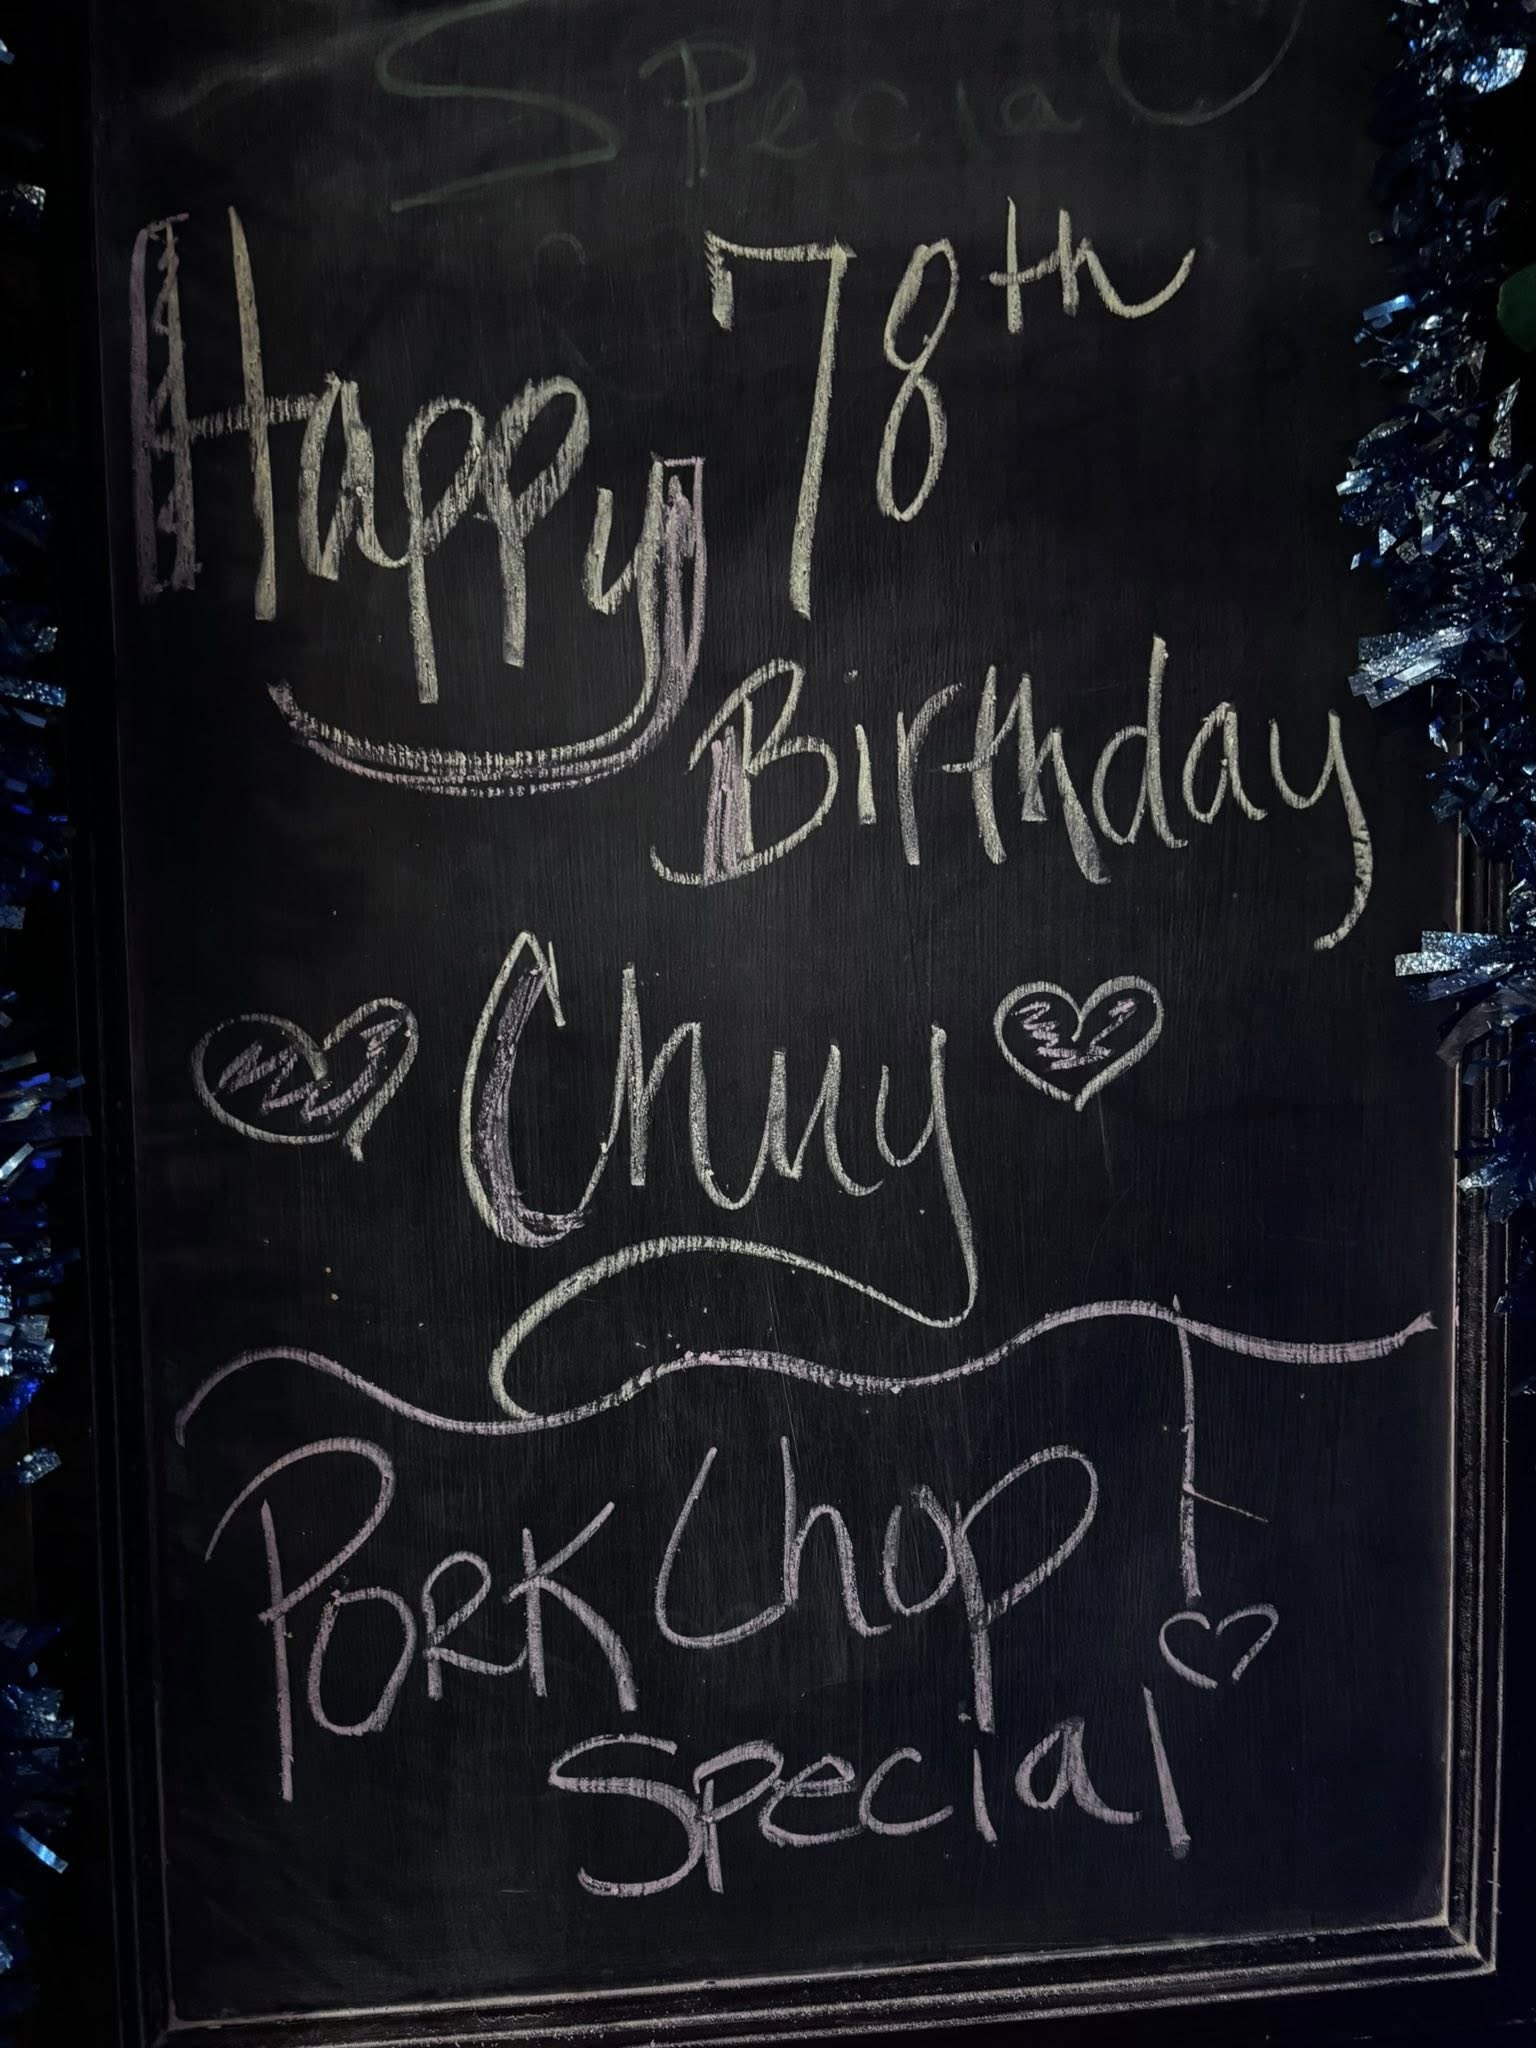 Special
Happy 78th
Birthday
Chuy
Pork Chop!
Special